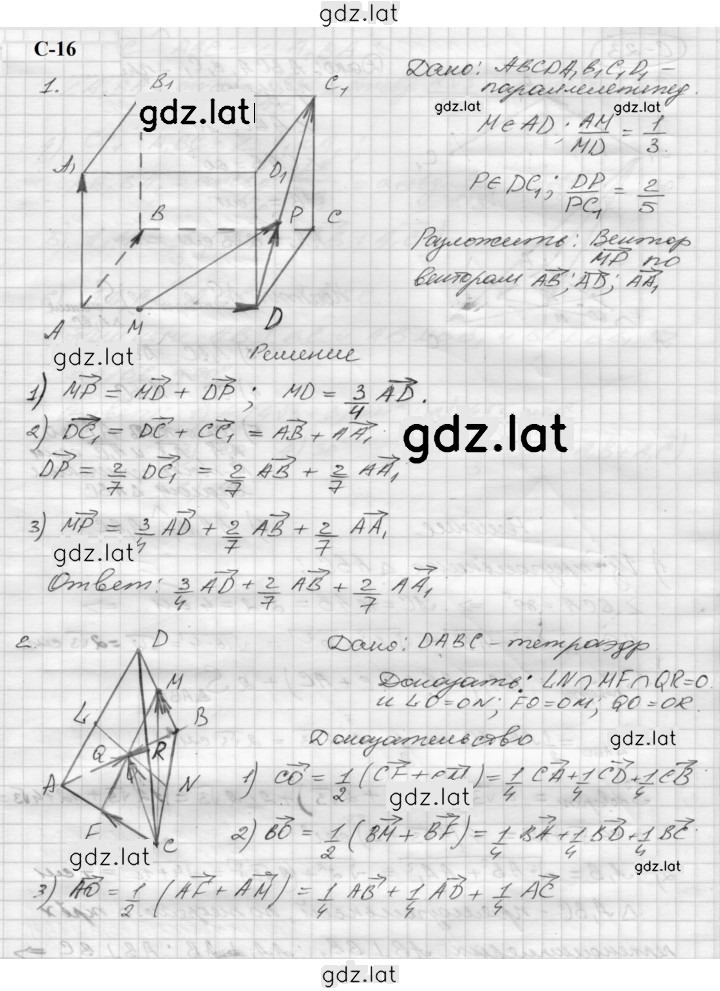 gdz.lat
С-16
1.
B₁
C₁
gdz.lat
A₁
D₁
B
P
C
A
M
D
gdz.lat
Дано: ABCDA₁B₁C₁D₁ –
параллелепипед.
gdz.lat
gdz.lat
M∈AD; AM/MD = 1/3.
P∈DC₁; DP/PC₁ = 2/5
Разложить: Вектор
MP→ по
векторам AB→; AD→; AA₁→
Решение
1) MP→ = MD→ + DP→; MD = 3/4 AD→.
2) DC₁→ = DC→ + CC₁→ = AB→ + AA₁→
gdz.lat
DP→ = 2/7 DC₁→ = 2/7 AB→ + 2/7 AA₁→
3) MP→ = 3/4 AD→ + 2/7 AB→ + 2/7 AA₁→
gdz.lat
Ответ: 3/4 AD→ + 2/7 AB→ + 2/7 AA₁→
2.
D
M
L
B
Q
R
A
N
F
C
Дано: DABC – тетраэдр
Доказать: LN∩MF∩QR=O.
и LO=ON; FO=OM; QO=OR.
Доказательство
1) CO→ = 1/2 (CF→ + CM→) = 1/4 CA→ + 1/4 CD→ + 1/4 CB→
gdz.lat
2) BO→ = 1/2 (BM→ + BF→) = 1/4 BA→ + 1/4 BD→ + 1/4 BC→
gdz.lat
gdz.lat
3) AO→ = 1/2 (AF→ + AM→) = 1/4 AB→ + 1/4 AD→ + 1/4 AC→
gdz.lat